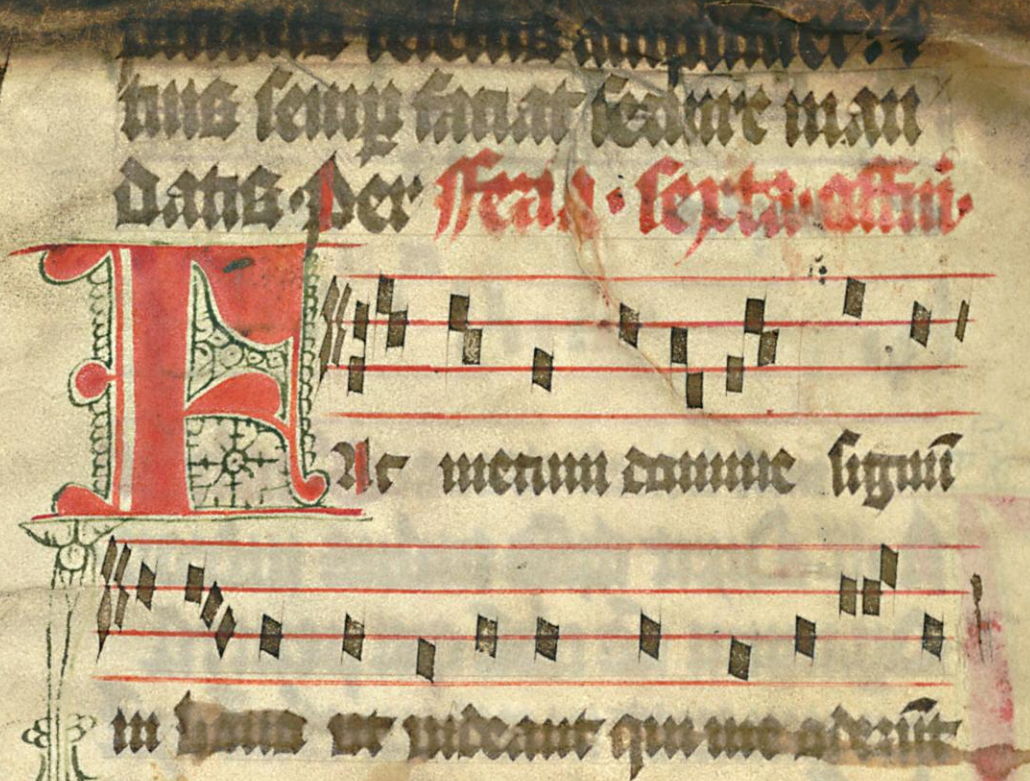 tuus semp faciat sedure man
datis. Per fferia. sexta. offiu.
FAc mecum domine signū
in bono ut uideant qui me oderūt